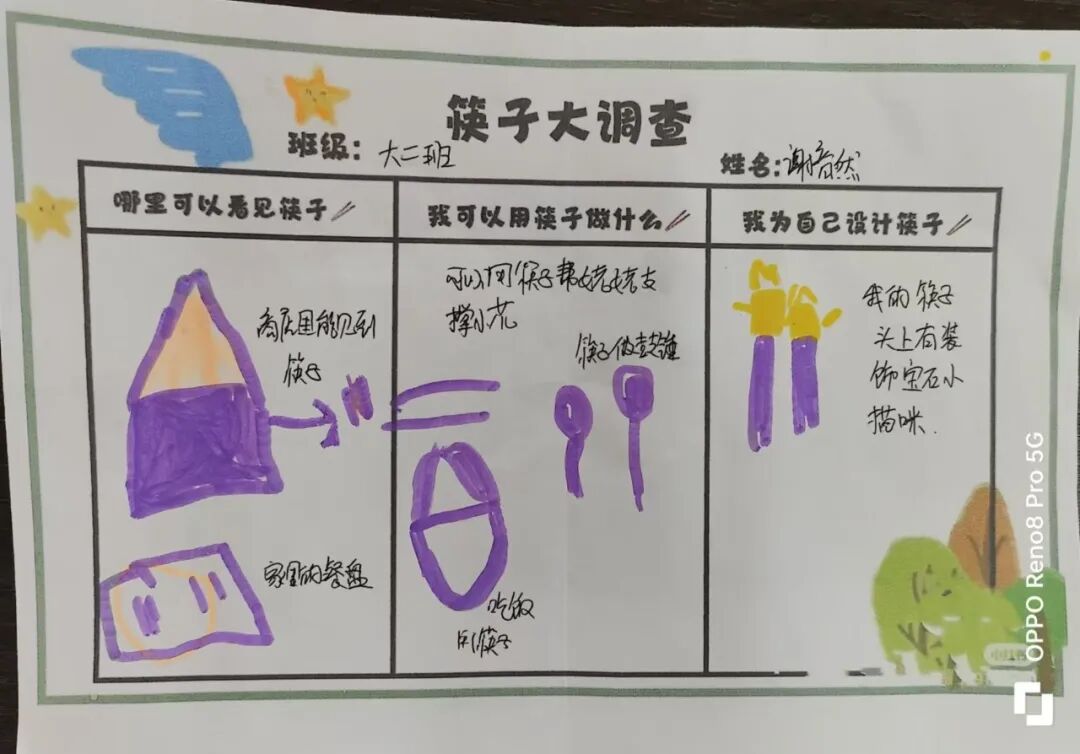 筷子大调查
班级：大二班
姓名:谢
然
哪里可以看见筷子
我可以用筷子做什么
我为自己设计筷子
商店里能见到
筷子
家里的餐盘
可以用筷子帮姥姥支
撑小花
筷子做鼓锤
吃饭
用筷子
我的筷子
头上有装
饰宝石小
猫咪.
OPPO Reno8 Pro 5G
小红书